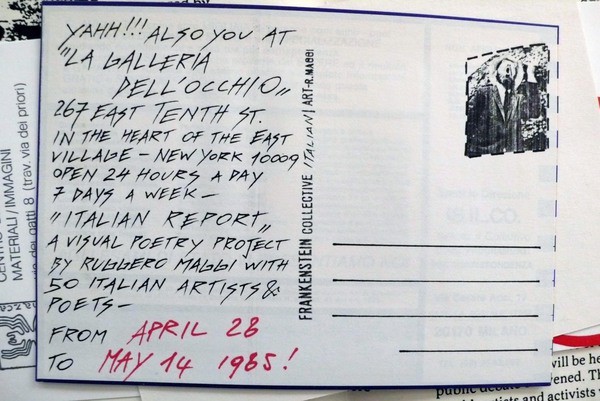 YAHH!!! ALSO YOU AT
"LA GALLERIA
DELL'OCCHIO"
267 EAST TENTH ST.
IN THE HEART OF THE EAST
VILLAGE – NEW YORK 10009
OPEN 24 HOURS A DAY
7 DAYS A WEEK –
"ITALIAN REPORT"
A VISUAL POETRY PROJECT
BY RUGGERO MAGGI WITH
50 ITALIAN ARTISTS &
POETS –
FROM APRIL 28
TO MAY 14 1985!
FRANKENSTEIN COLLECTIVE ITALIAN/ART-R.MAGGI
MATERIALI/IMMAGINI
dei gatti 8 (trav. via dei priori)
will be he
public debate
artists and activists